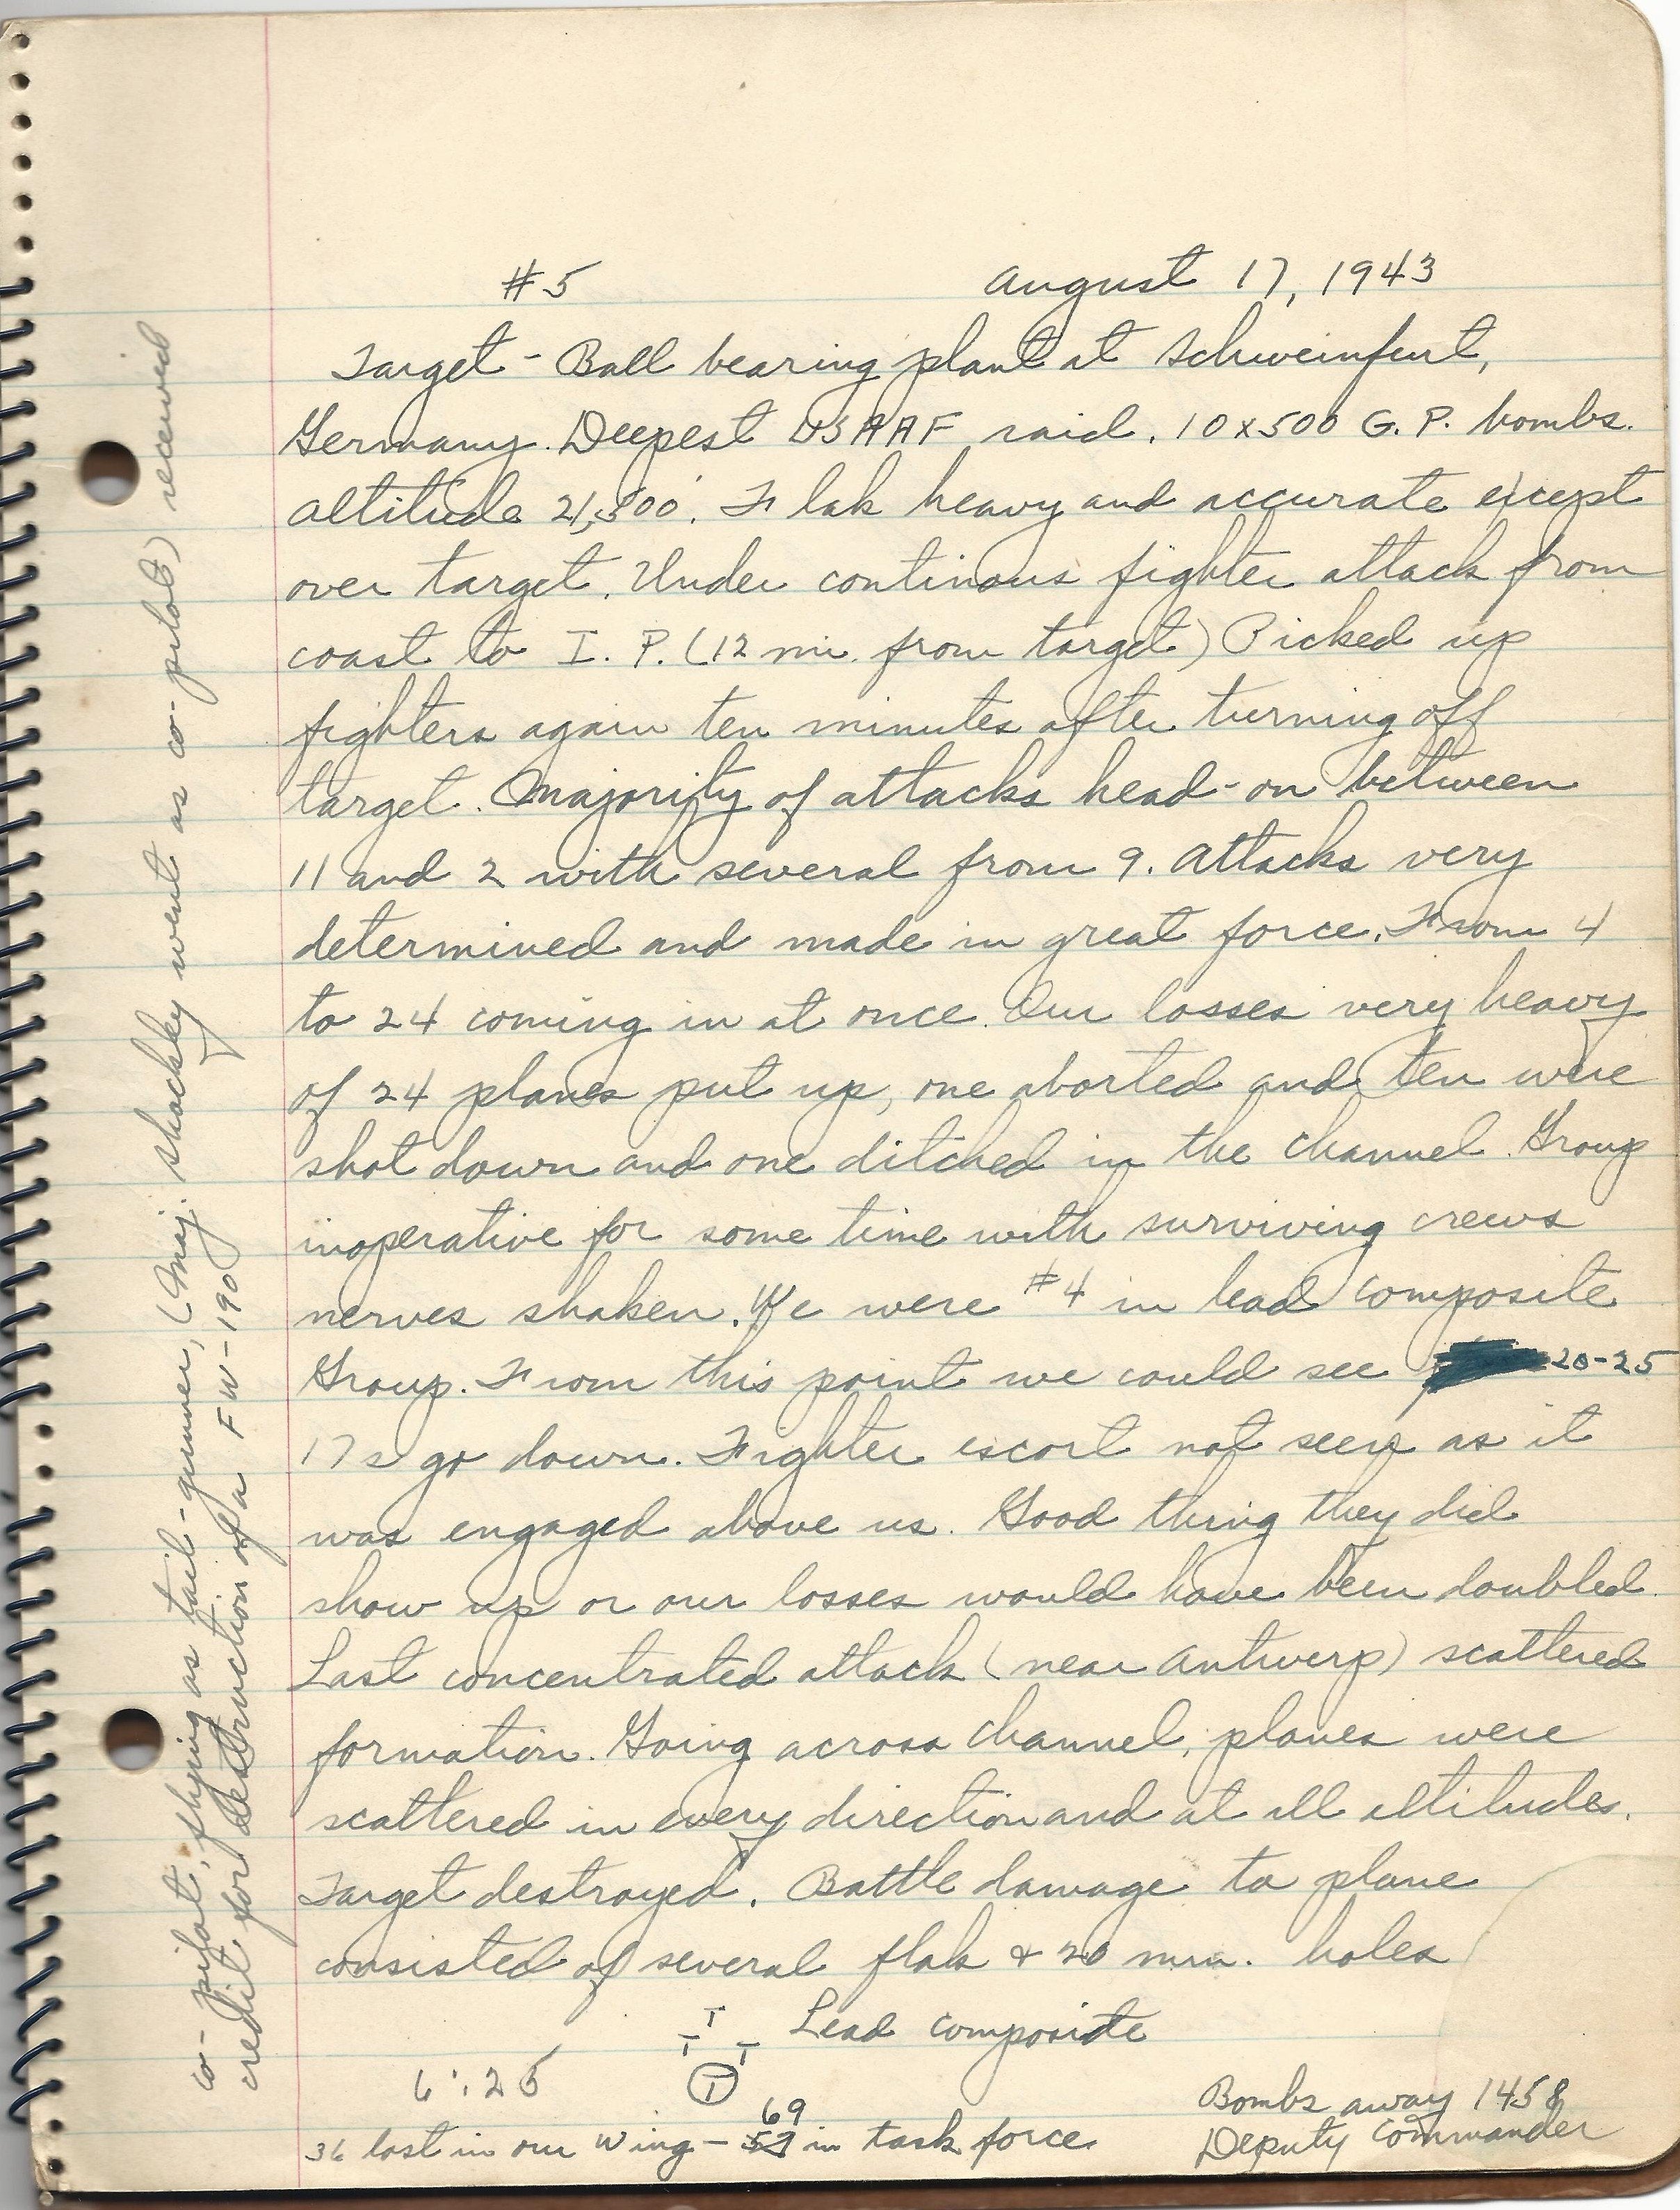 #5 August 17, 1943
Target - Ball bearing plant at Schweinfurt,
Germany. Deepest USAAF raid. 10x500 G.P. bombs.
Altitude 21,500'. Flak heavy and accurate except
over target. Under continous fighter attack from
coast to I.P. (12 mi. from target) Picked up
fighters again ten minutes after turning off
target. Majority of attacks head-on between
11 and 2 with several from 9. Attacks very
determined and made in great force. From 4
to 24 coming in at once. Our losses very heavy
of 24 planes put up, one aborted and ten were
shot down and one ditched in the channel. Group
inoperative for some time with surviving crews
nerves shaken. We were #4 in lead composite
Group. From this point we could see 20-25
17s go down. Fighter escort not seen as it
was engaged above us. Good thing they did
show up or our losses would have been doubled.
Last concentrated attack (near Antwerp) scattered
formation. Going across channel, planes were
scattered in every direction and at all altitudes.
Target destroyed. Battle damage to plane
consisted of several flak & 20 mm. holes
Lead composite
6:25
36 lost in our wing - 69 in task force
Bombs away 1458
Deputy Commander
co-pilot, flying as tail-gunner, (Maj. Shackley went as co-pilot) received
credit for destruction of a FW-190